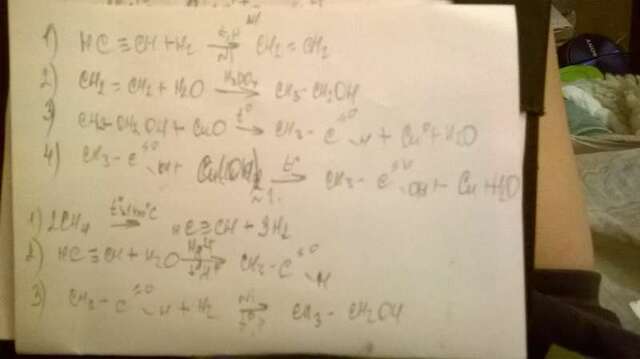 1) HC≡CH + H₂ →(t, Ni) CH₂=CH₂
2) CH₂=CH₂ + H₂O →(H₃PO₄) CH₃-CH₂OH
3) CH₃-CH₂OH + CuO →(t°) CH₃-C(=O)H + Cu° + H₂O
4) CH₃-C(=O)H + Cu(OH)₂ →(t°) CH₃-C(=O)OH + Cu + H₂O
1) 2CH₄ → HC≡CH + 3H₂
2) HC≡CH + H₂O →(Hg²⁺, H⁺) CH₃-C(=O)H
3) CH₃-C(=O)H + H₂ →(Ni) CH₃-CH₂OH